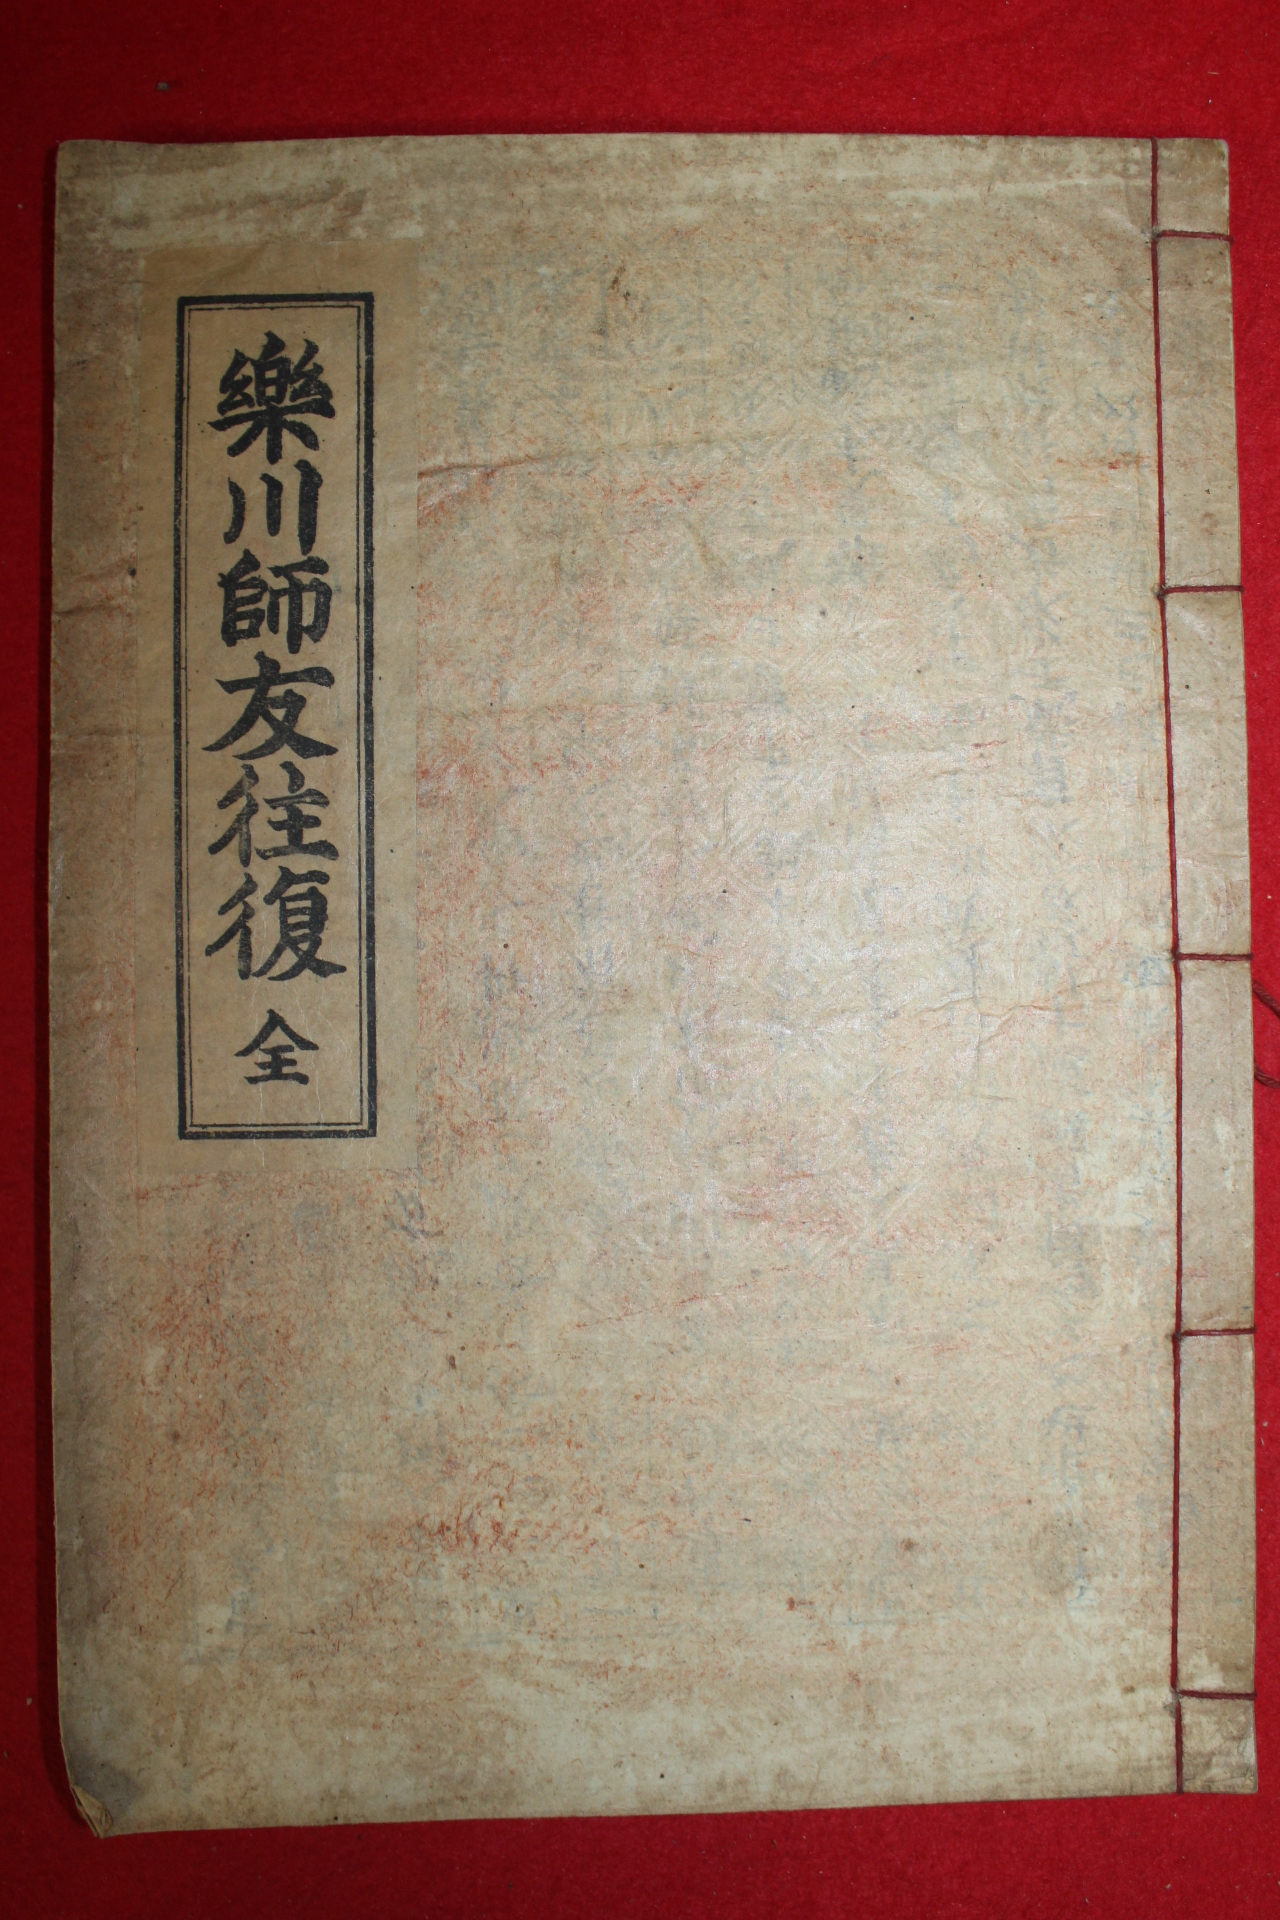 樂川師友往復 全